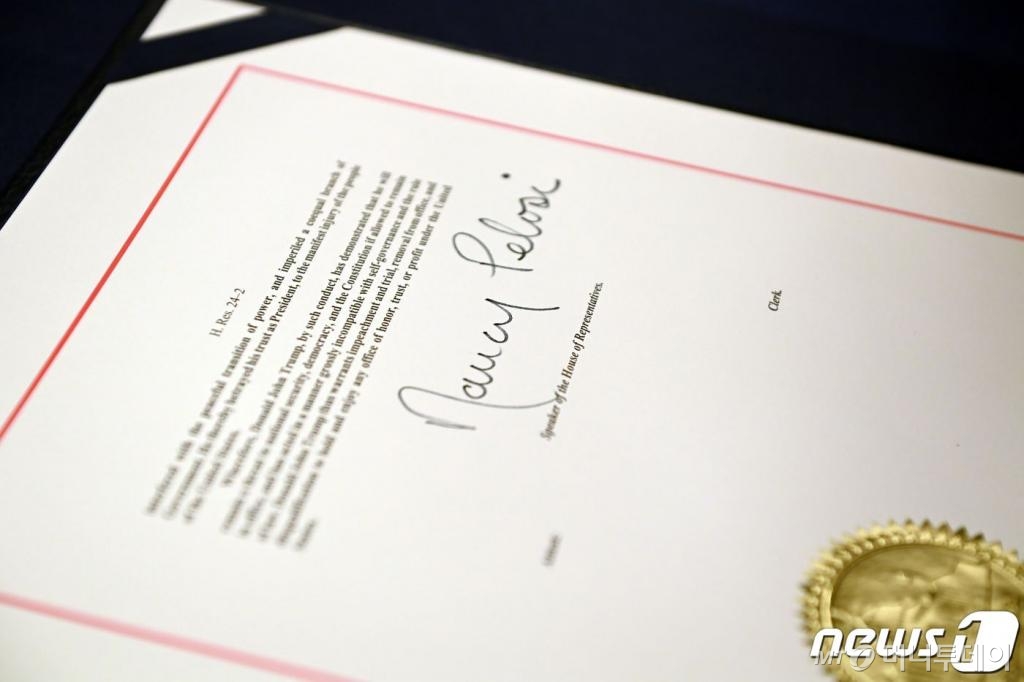 H. Res. 24–2
interfered with the peaceful transition of power, and imperiled a coequal branch of
Government. He thereby betrayed his trust as President, to the manifest injury of the people
of the United States.
Wherefore, Donald John Trump, by such conduct, has demonstrated that he will
remain a threat to national security, democracy, and the Constitution if allowed to remain
in office, and has acted in a manner grossly incompatible with self-governance and the rule
of law. Donald John Trump thus warrants impeachment and trial, removal from office, and
disqualification to hold and enjoy any office of honor, trust, or profit under the United
States.
Nancy Pelosi
Speaker of the House of Representatives.
Attest:
Clerk.
news1
머니투데이